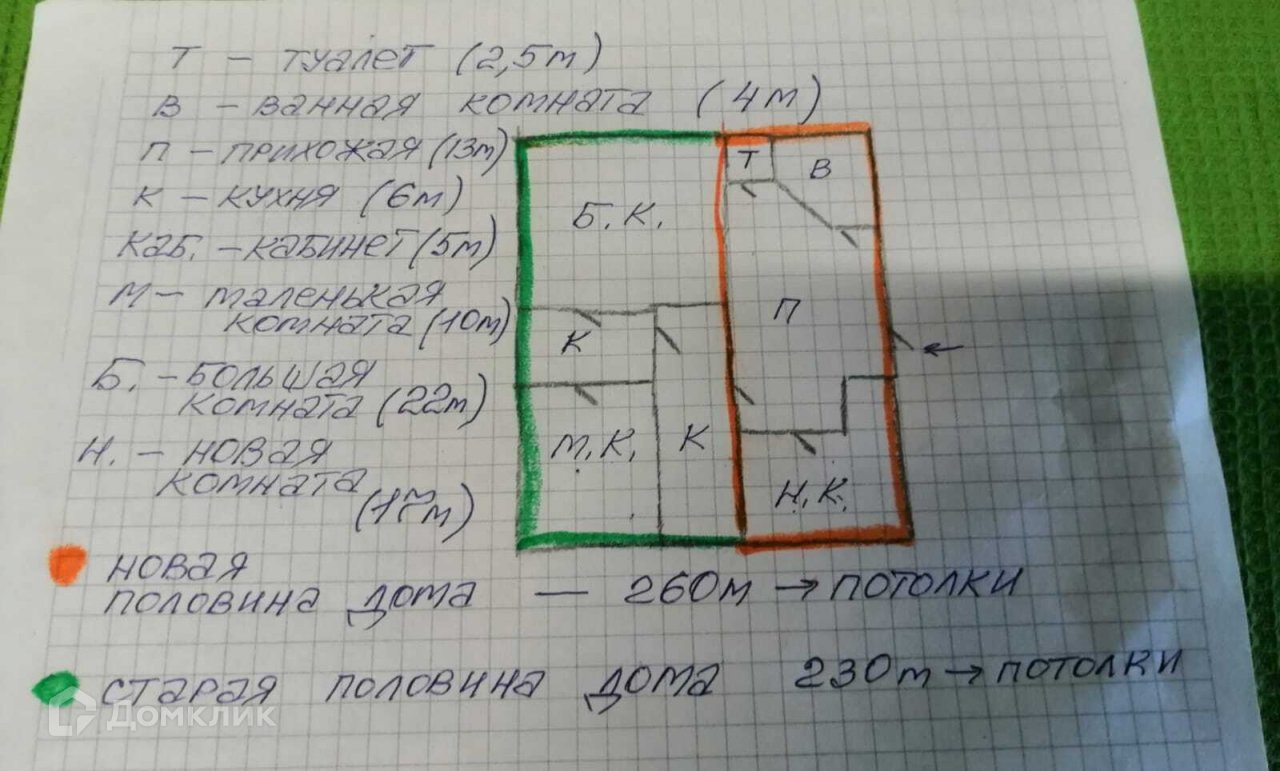 Т – туалет (2,5м)
В – ванная комната (4м)
П – прихожая (13м)
К – кухня (6м)
Каб. – кабинет (5м)
М – маленькая
комната (10м)
Б. – большая
комната (22м)
Н. – новая
комната
Т
В
Б.К.
П
К
М.К.
К
Н.К.
новая
половина дома — 260м → потолки
старая половина дома 230м → потолки
Домклик